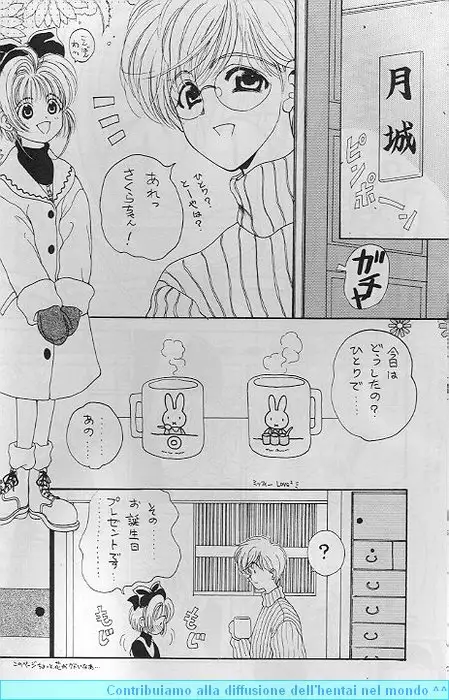 月城
ピンポーン
ガチャ
あれっ
さくらちゃん!
ひとり?
とーやは?
こんにちわっ
今日は
どうしたの?
ひとりで……
あの……
ミッフィー LOVE
その……
お誕生日
プレゼントです…
?
もじ
もじ
Contribuiamo alla diffusione dell'hentai nel mondo ^^